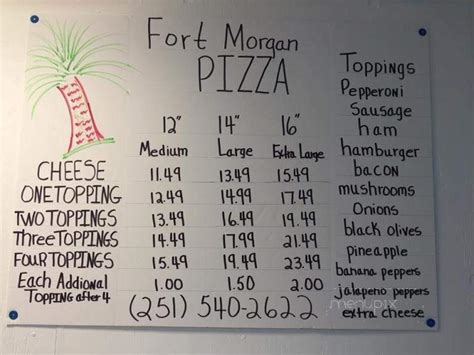 Fort Morgan
PIZZA
12" 14" 16"
Medium Large Extra Large
CHEESE 11.49 13.49 15.49
ONE TOPPING 12.49 14.99 17.49
TWO TOPPINGS 13.49 16.49 19.49
Three TOPPINGS 14.49 17.99 21.49
FOUR TOPPINGS 15.49 19.49 23.49
Each Addional 1.00 1.50 2.00
TOPPING after 4
(251) 540-2622
Toppings
Pepperoni
Sausage
ham
hamburger
bacon
mushrooms
Onions
black olives
pineapple
banana peppers
jalapeno peppers
extra cheese
menupix